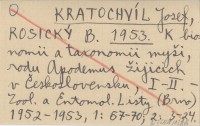 KRATOCHVÍL Josef,
ROSICKÝ B. 1953. K bio
nomii a taxonomii myší,
rodu Apodemus žijících
v Československu, I-II -
Zool. a Entomol. Listy (Brno)
1952-1953, 1: 57-70, 2: 3-34